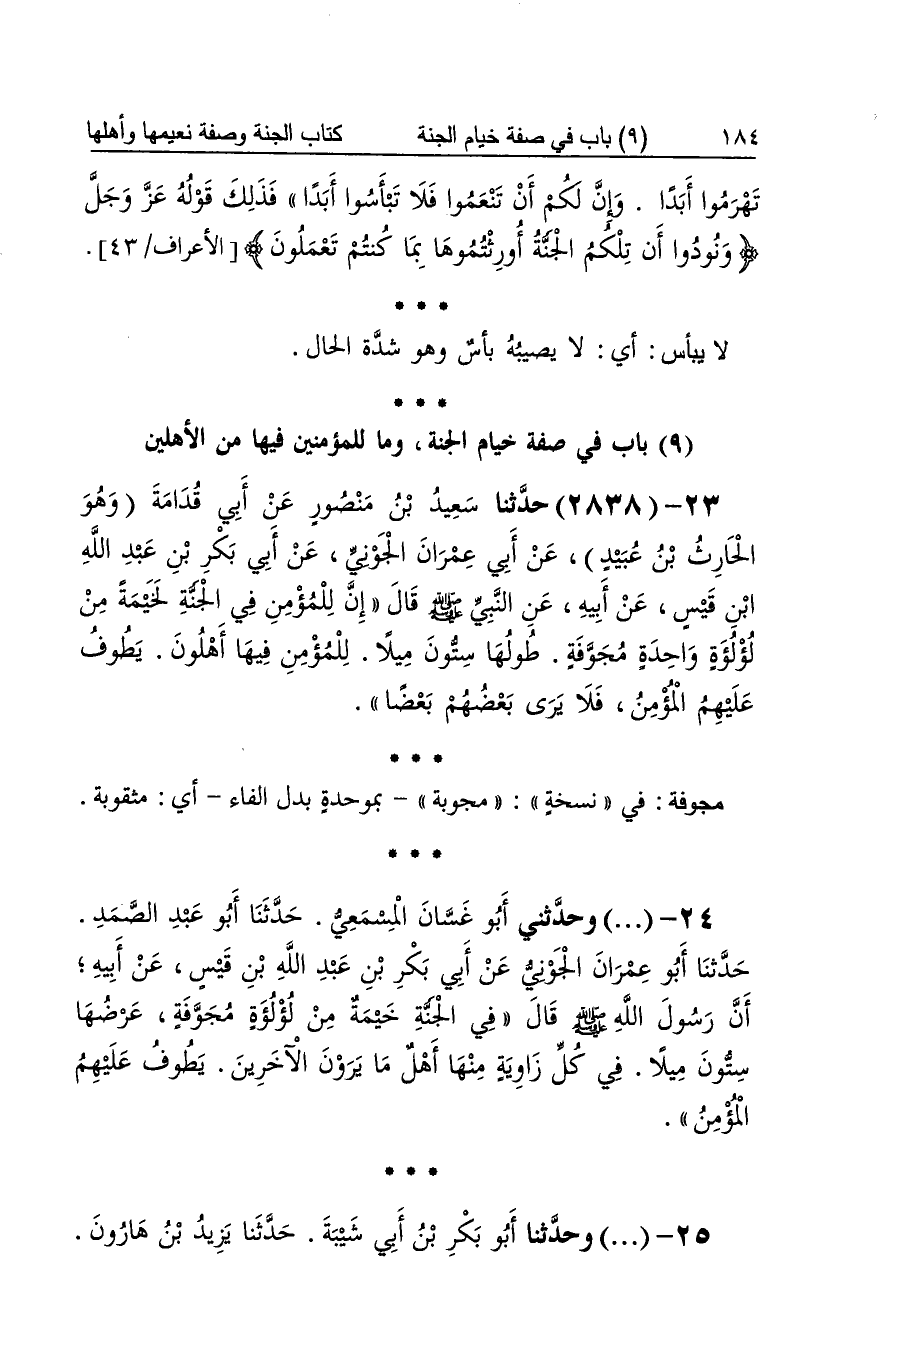 ١٨٤ (٩) باب في صفة خيام الجنة كتاب الجنة وصفة نعيمها وأهلها
تَهْرَمُوا أَبَدًا . وَإِنَّ لَكُمْ أَنْ تَنْعَمُوا فَلَا تَبْأَسُوا أَبَدًا » فَذَلِكَ قَوْلُهُ عَزَّ وَجَلَّ
﴿ وَنُودُوا أَن تِلْكُمُ الْجَنَّةُ أُورِثْتُمُوهَا بِمَا كُنتُمْ تَعْمَلُونَ ﴾ [ الأعراف/ ٤٣] .
* * *
لا يبأس : أي : لا يصيبُهُ بأسٌ وهو شدَّة الحال .
* * *
(٩) باب في صفة خيام الجنة ، وما للمؤمنين فيها من الأهلين
٢٣- (٢٨٣٨) حدَّثنا سَعِيدُ بْنُ مَنْصُورٍ عَنْ أَبِي قُدَامَةَ ( وَهُوَ
الْحَارِثُ بْنُ عُبَيْدٍ ) ، عَنْ أَبِي عِمْرَانَ الْجَوْنِيِّ ، عَنْ أَبِي بَكْرِ بْنِ عَبْدِ اللَّهِ
ابْنِ قَيْسٍ ، عَنْ أَبِيهِ ، عَنِ النَّبِيِّ ﷺ قَالَ « إِنَّ لِلْمُؤْمِنِ فِي الْجَنَّةِ لَخَيْمَةً مِنْ
لُؤْلُؤَةٍ وَاحِدَةٍ مُجَوَّفَةٍ . طُولُهَا سِتُّونَ مِيلًا . لِلْمُؤْمِنِ فِيهَا أَهْلُونَ . يَطُوفُ
عَلَيْهِمُ الْمُؤْمِنُ ، فَلَا يَرَى بَعْضُهُمْ بَعْضًا » .
* * *
مجوفة : في « نسخةٍ » : « مجوبة » - بموحدةٍ بدل الفاء - أي : مثقوبة .
* * *
٢٤- (...) وحدَّثني أَبُو غَسَّانَ الْمِسْمَعِيُّ . حَدَّثَنَا أَبُو عَبْدِ الصَّمَدِ .
حَدَّثَنَا أَبُو عِمْرَانَ الْجَوْنِيُّ عَنْ أَبِي بَكْرِ بْنِ عَبْدِ اللَّهِ بْنِ قَيْسٍ ، عَنْ أَبِيهِ ؛
أَنَّ رَسُولَ اللَّهِ ﷺ قَالَ « فِي الْجَنَّةِ خَيْمَةٌ مِنْ لُؤْلُؤَةٍ مُجَوَّفَةٍ ، عَرْضُهَا
سِتُّونَ مِيلًا . فِي كُلِّ زَاوِيَةٍ مِنْهَا أَهْلٌ مَا يَرَوْنَ الْآخَرِينَ . يَطُوفُ عَلَيْهِمُ
الْمُؤْمِنُ » .
* * *
٢٥- (...) وحدَّثنا أَبُو بَكْرِ بْنُ أَبِي شَيْبَةَ . حَدَّثَنَا يَزِيدُ بْنُ هَارُونَ .